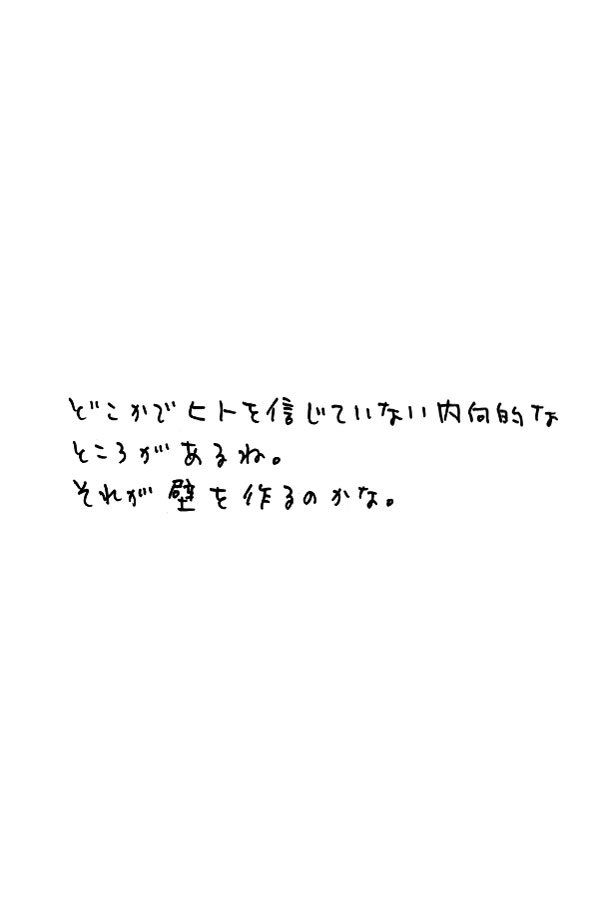 どこかでヒトを信じていない内向的な
ところがあるね。
それが壁を作るのかな。